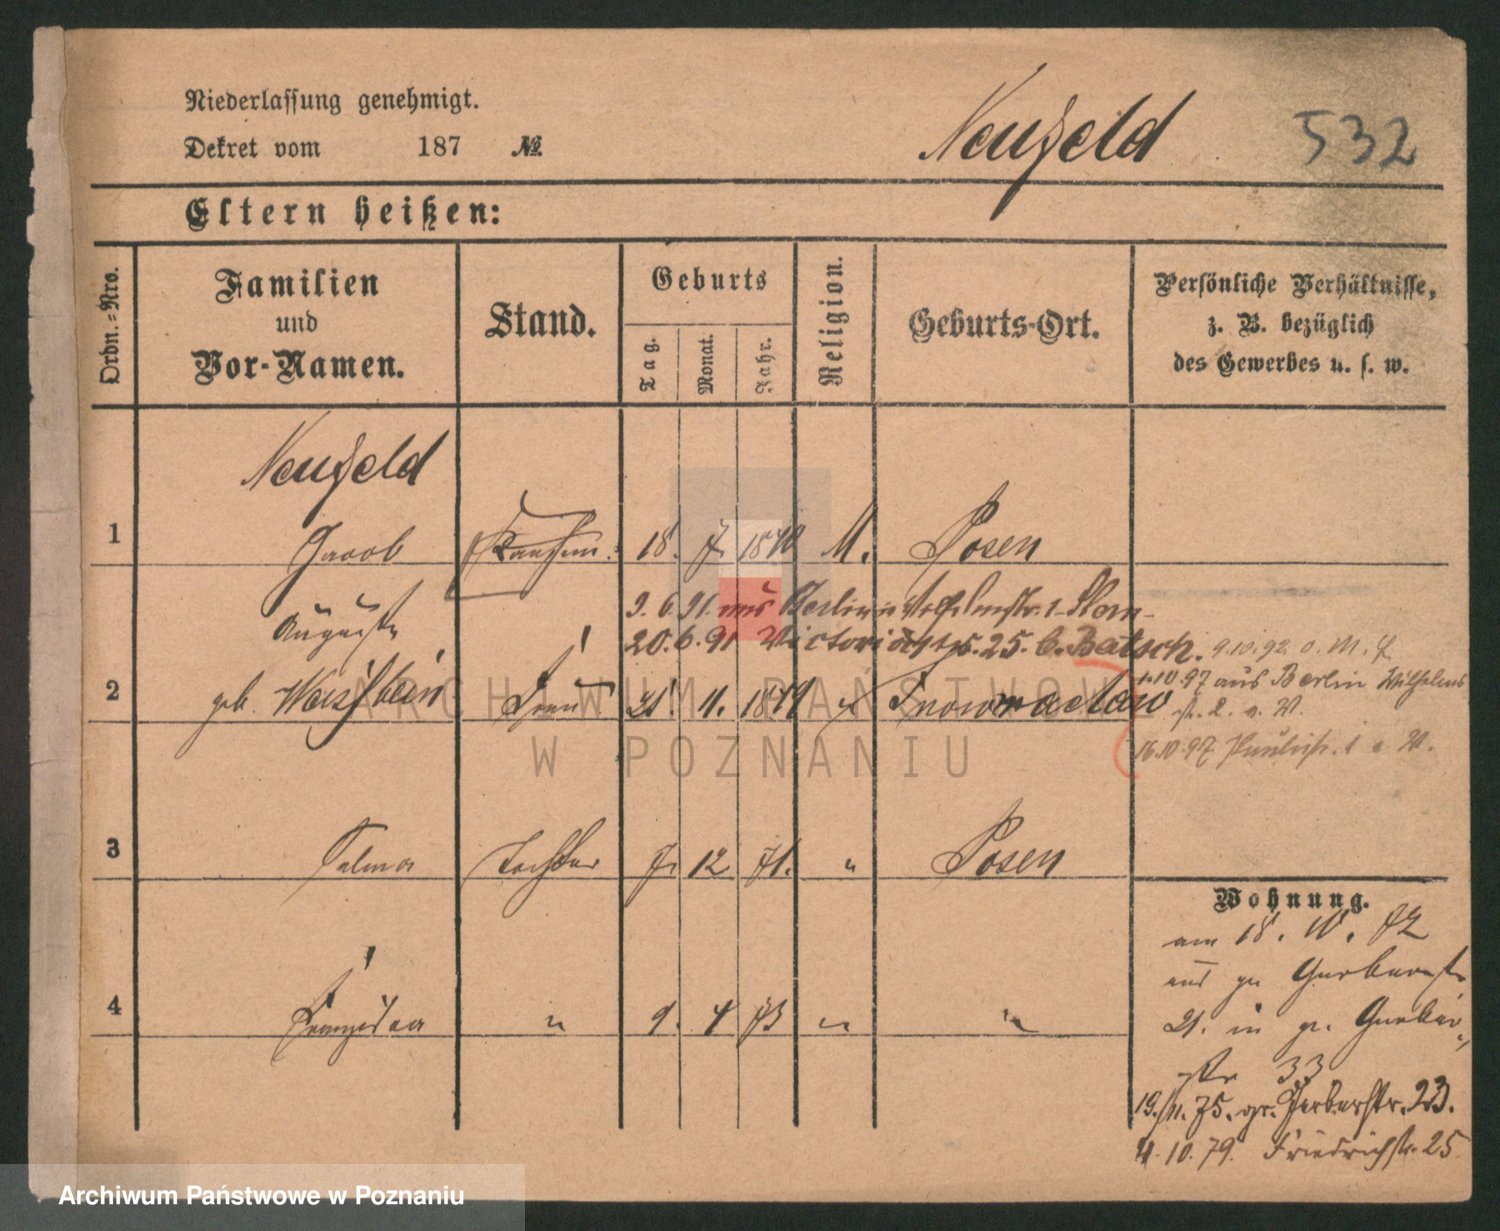 Niederlassung genehmigt.
Dekret vom 187 №
Neufeld
532
Eltern heißen:
Ordn.-Nro.
Familien
und
Vor-Namen.
Stand.
Geburts
Tag.
Monat.
Jahr.
Religion.
Geburts-Ort.
Persönliche Verhältnisse,
z. B. bezüglich
des Gewerbes u. s. w.
Neufeld
1 Jacob Kaufm. 18. 7. 1840 M. Posen
Auguste
9. 6. 91. aus Berlin
20. 6. 91 Victoriastr. 25. b. Batsch.
9.10.92
2 geb. Weißbein Frau 21. 11. 1849 Inowraclaw
1.10.97 aus Berlin Wilhelms
str. 2.
16.10.97 Paulistr. 1
3 Salma Tochter 7. 12 71. " Posen
4 Franziska " 9. 4 73 " "
Wohnung.
am 18. 72
aus gr. Gerberstr
21. in gr. Gerber-
str 33
19./11. 75. gr. Gerberstr. 23.
4. 10. 79. Friedrichstr. 25
ARCHIWUM PAŃSTWOWE
W POZNANIU
Archiwum Państwowe w Poznaniu